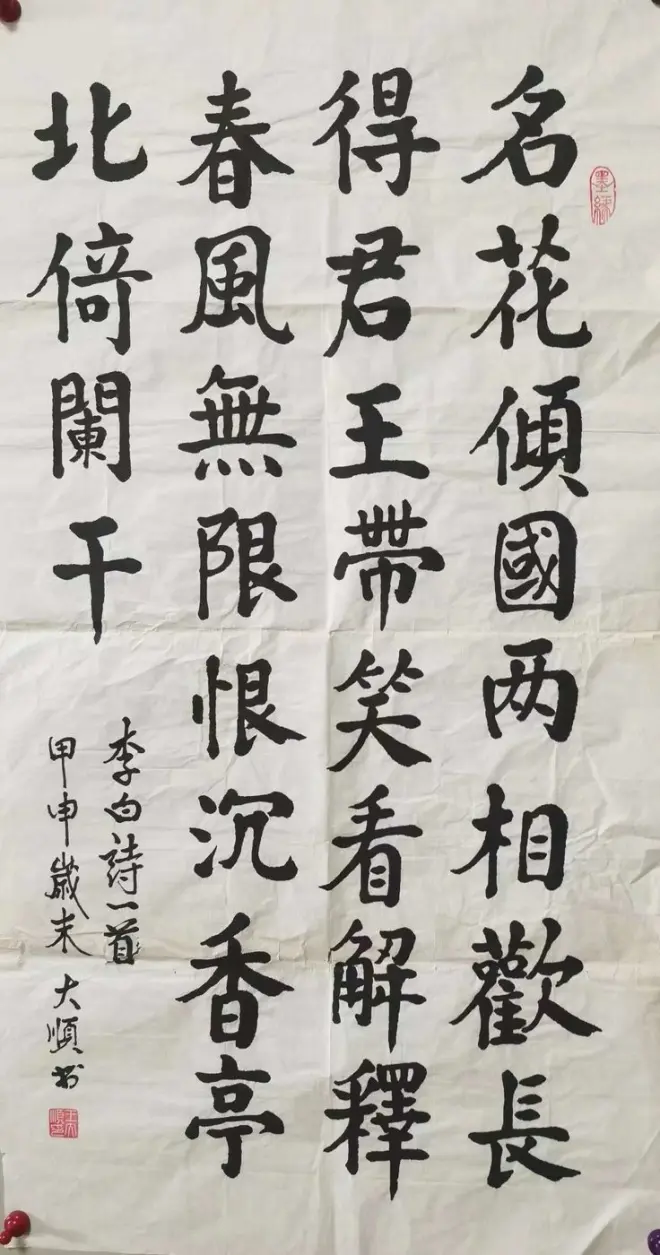 名花傾國两相歡長
得君王帶笑看解釋
春風無限恨沉香亭
北倚闌干
李白詩一首
甲申歲末 大順书
墨缘